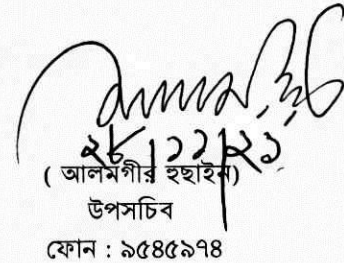 ২৮/১১/২১
( আলমগীর হুছাইন)
উপসচিব
ফোন : ৯৫৪৫৯৭৪